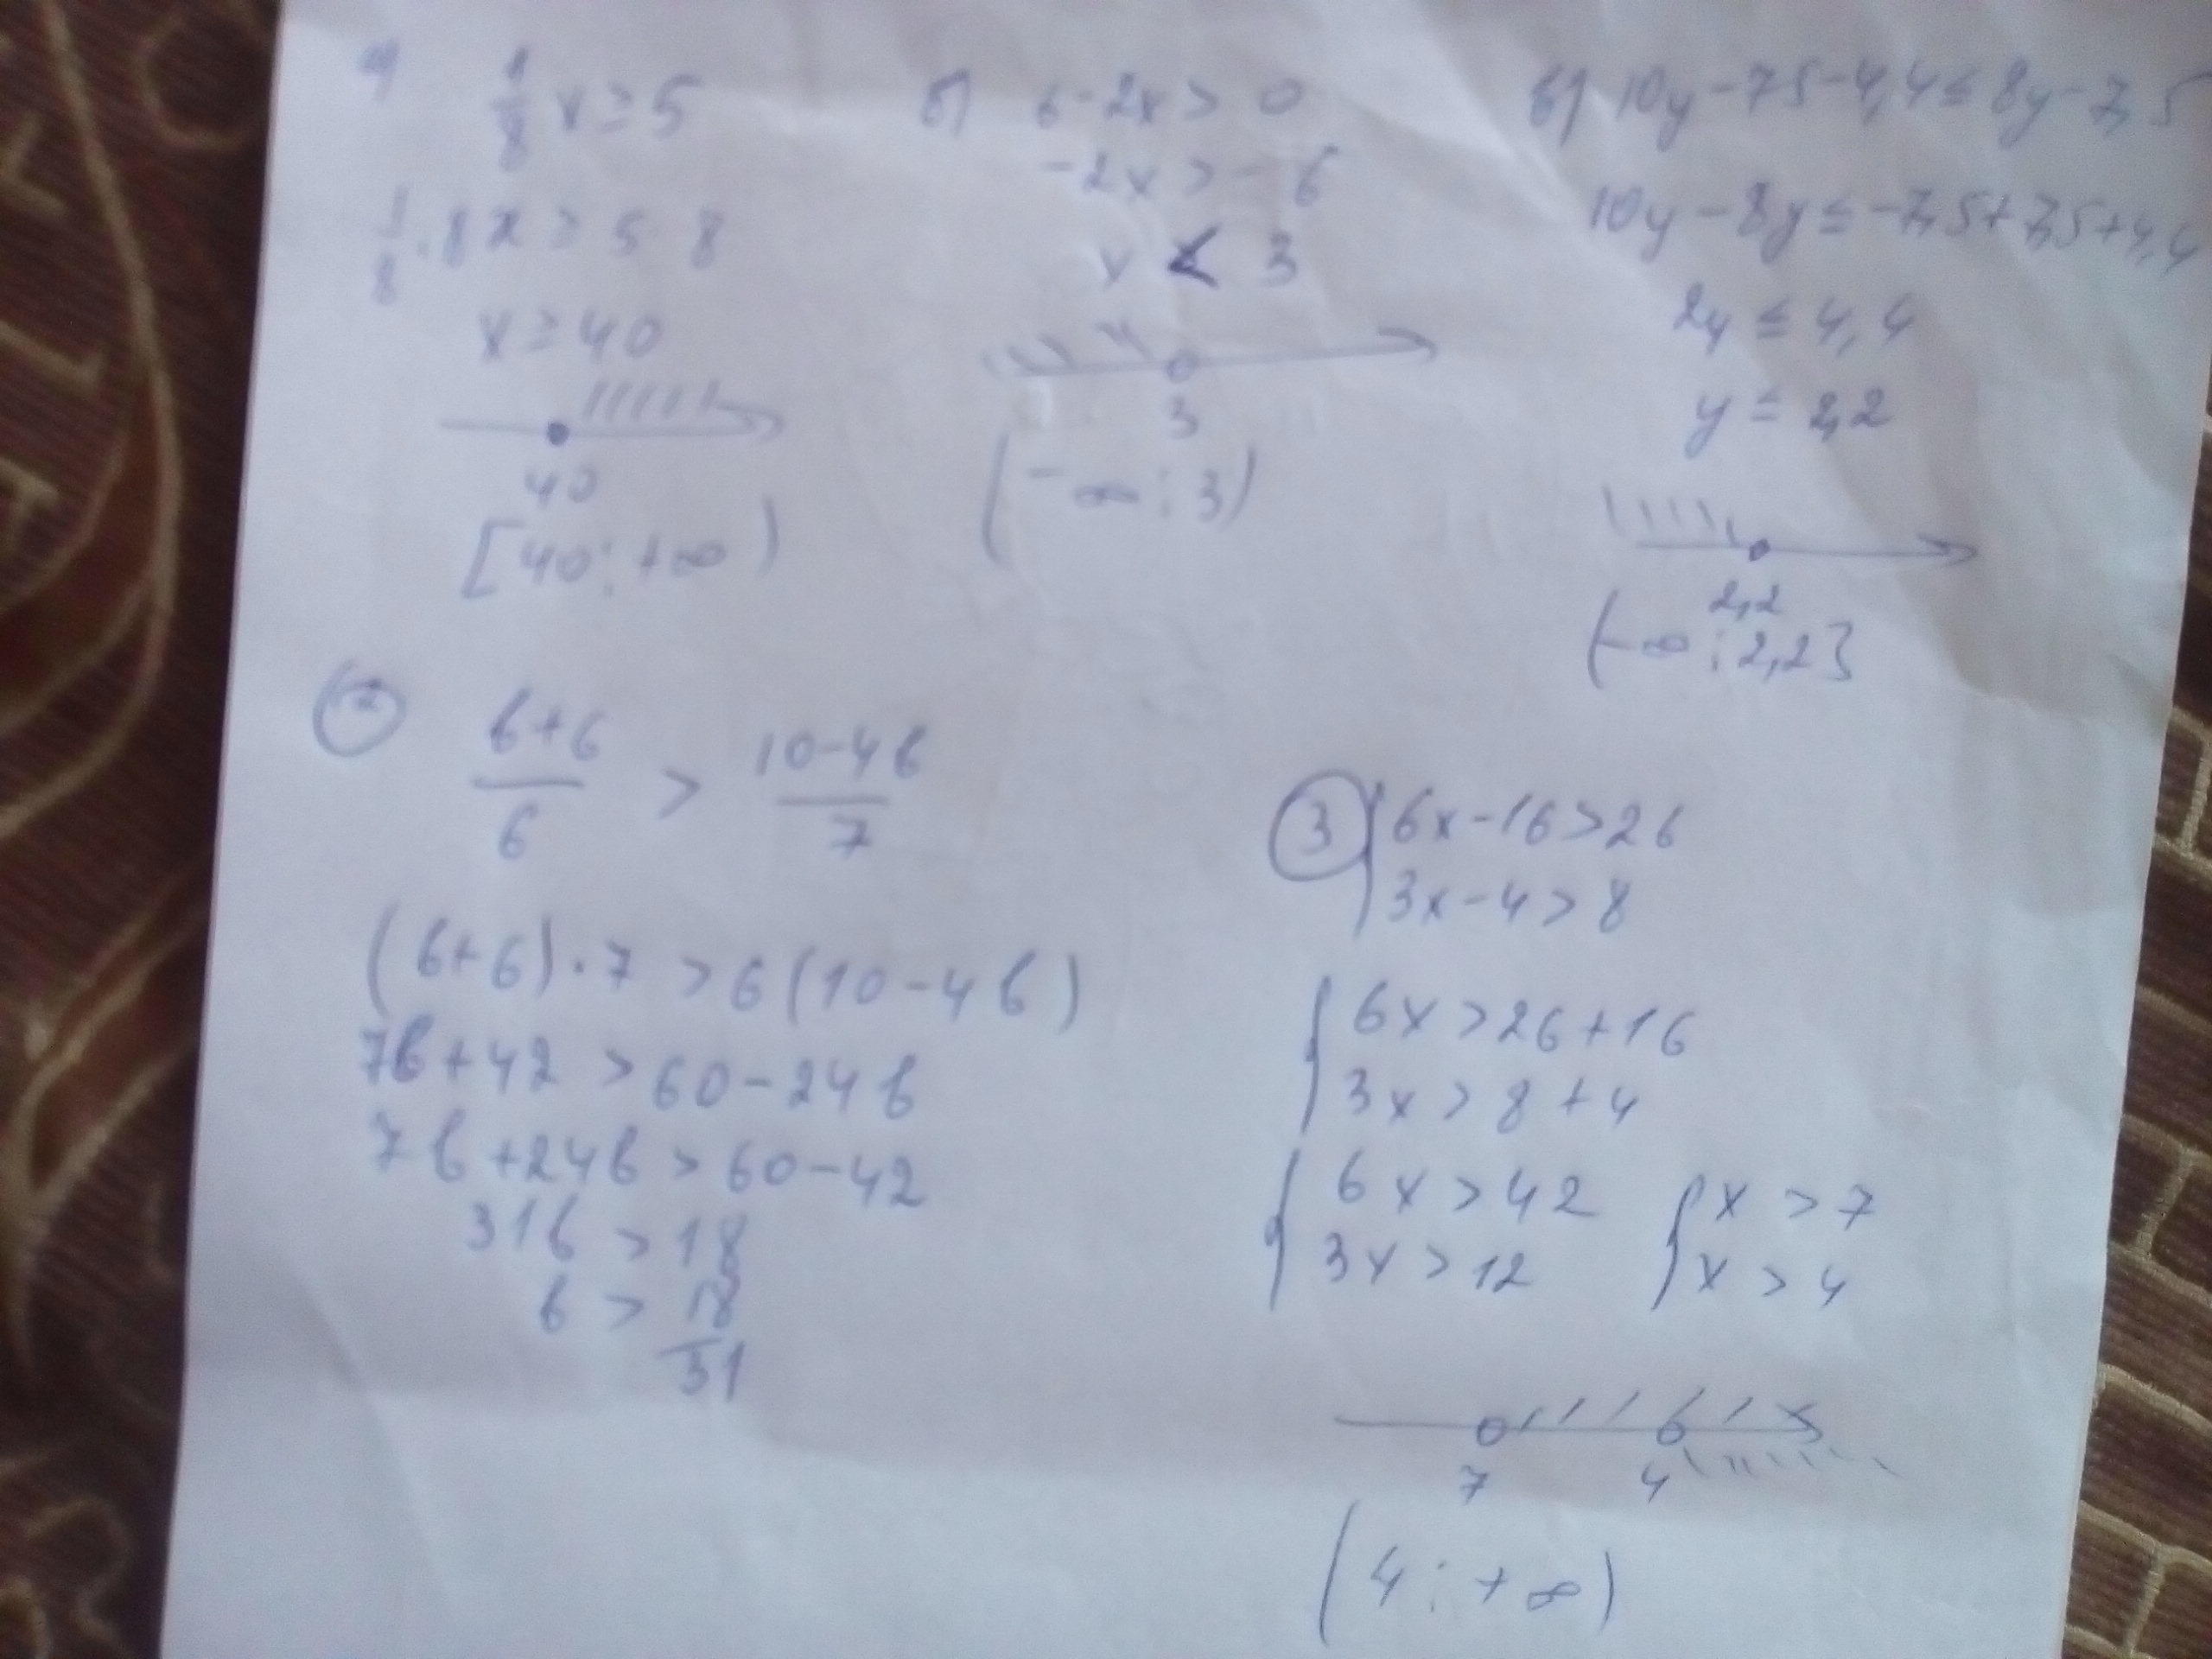 а) 1/8 x ≥ 5
1/8 · 8x ≥ 5 8
x ≥ 40
40
[40; +∞)
б) 6-2x > 0
-2x > -6
x < 3
3
(-∞; 3)
в) 10y - 7,5 - 4,4 ≤ 8y - 7,5
10y - 8y ≤ -7,5 + 7,5 + 4,4
2y ≤ 4,4
y ≤ 2,2
2,2
(-∞; 2,2]
2 (в+6)/6 > (10-4в)/7
(в+6)·7 > 6(10-4в)
7в+42 > 60-24в
7в+24в > 60-42
31в > 18
в > 18/31
3 { 6x-16>26
3x-4>8
{ 6x>26+16
3x>8+4
{ 6x>42 { x > 7
3x>12 x > 4
7 4
(4; +∞)